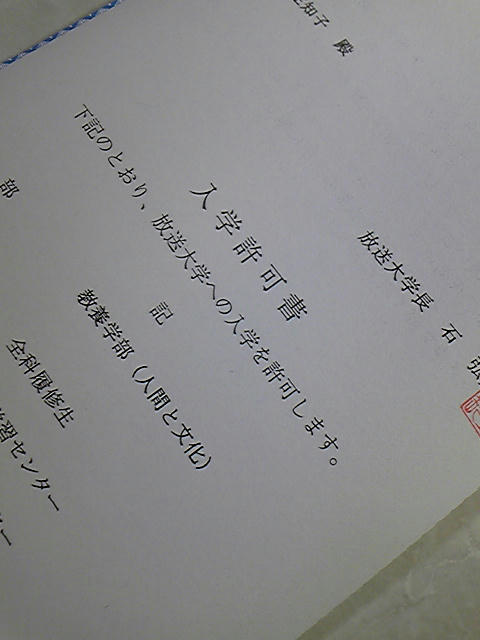 知子 殿
放送大学長 石 弘
入学許可書
下記のとおり、放送大学への入学を許可します。
記
部 教養学部（人間と文化）
全科履修生
学習センター
ー